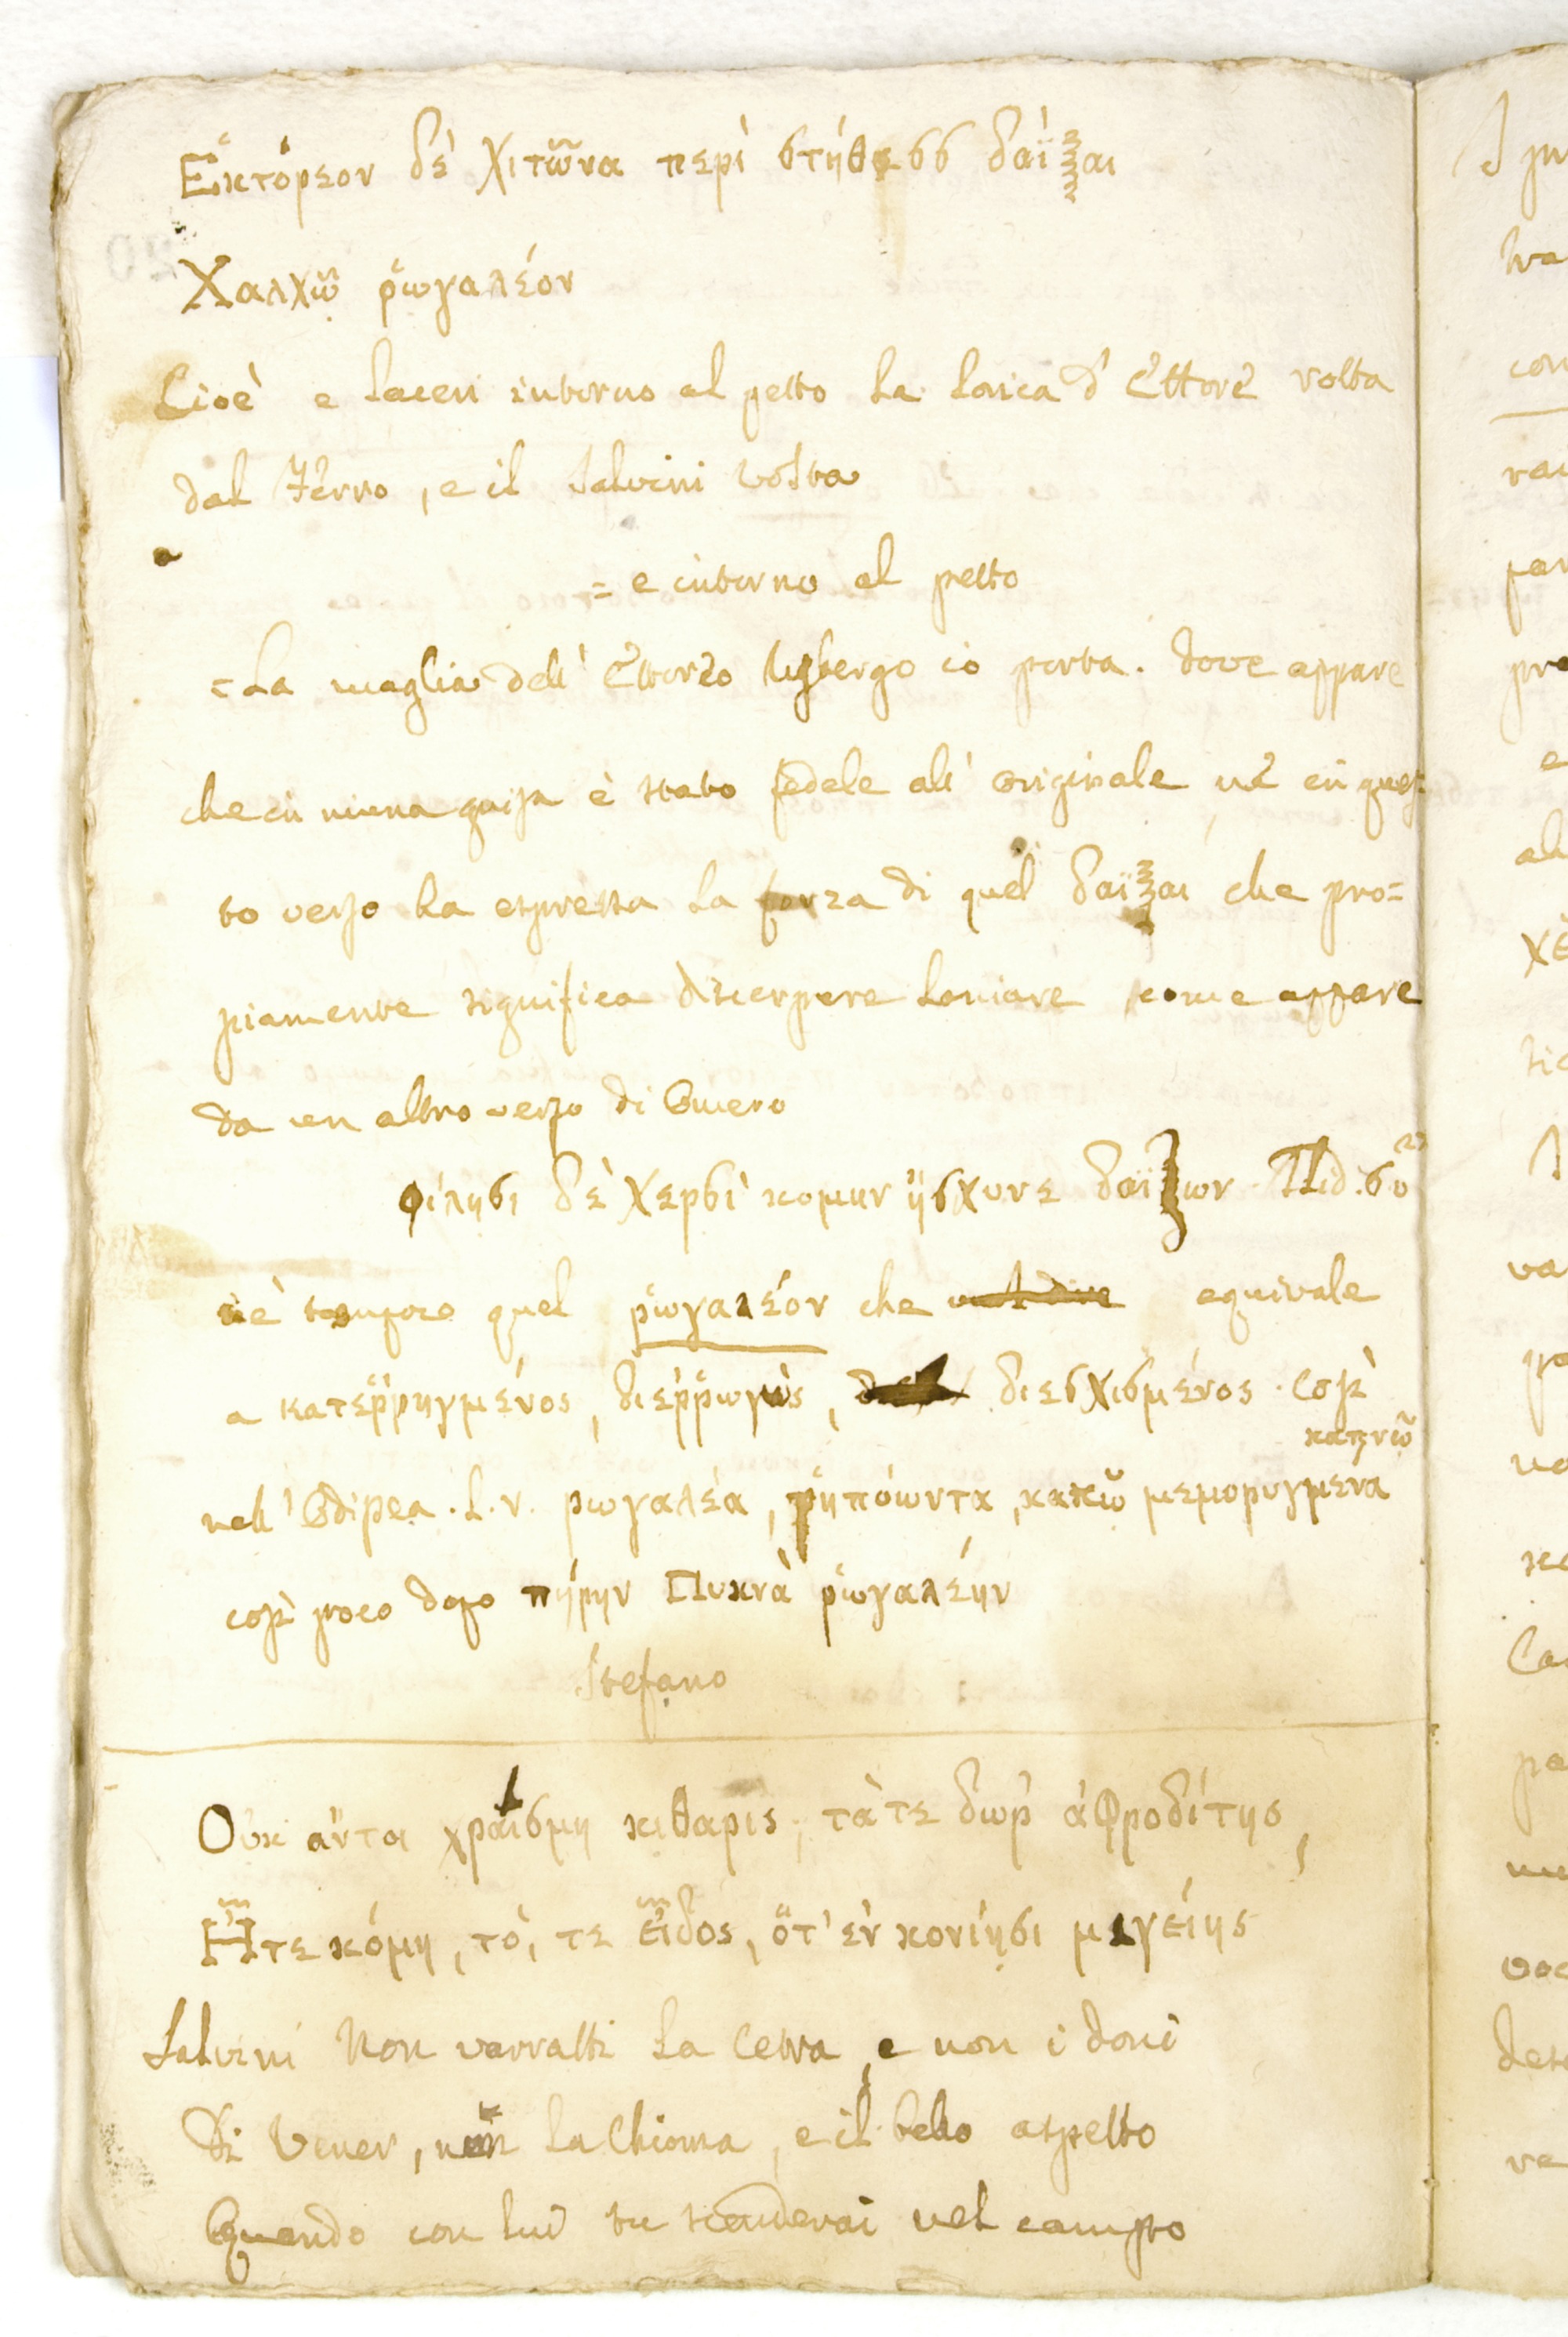 Εἕκτόρεον δὲ χιτῶνα περὶ στήθεσσ δαΐξαι
Χαλχῶ ῥωγαλέον
Cioè e laceri intorno al petto la lorica d'Ettore rotta
dal Ferro, e il Salvini volta
= e intorno al petto
= La maglia dell' Ettoreo Usbergo io porta. Dove appare
che in niuna guisa è stato fedele all' originale nè in ques=
to verso ha espressa la forza di quel δαΐξαι che pro=
piamente significa discerpere laniare come appare
da un altro verso di Omero
φίλησι δὲ χερσὶ κομην ᾔσχυνε δαΐζων Ilid. σ
nè tampoco quel ῥωγαλέον che equivale
a κατεῤῥηγμένος, διεῤῥωγὼς, διεσχισμένος. Così
καπνῶ
nell' Odissea. L. ν. ρωγαλέα, ῥηπόωντα, κακῶ μεμορυγμένα
così poco dopo πήρην Πυκνὰ ῥωγαλέην
Stefano
Οὐκ ἄντοι χραίσμη κιθαρις, τὰ τε δωρ' ἀφροδίτης,
Ητε κόμη, τὸ, τε εἶδος, ὅτ' ἐν κονίησι μιγείης
Salvini Non varratti la Cetra, e non i doni
Di Vener, non la Chioma, e il bello aspetto
Quando con lui tu scenderai nel campo